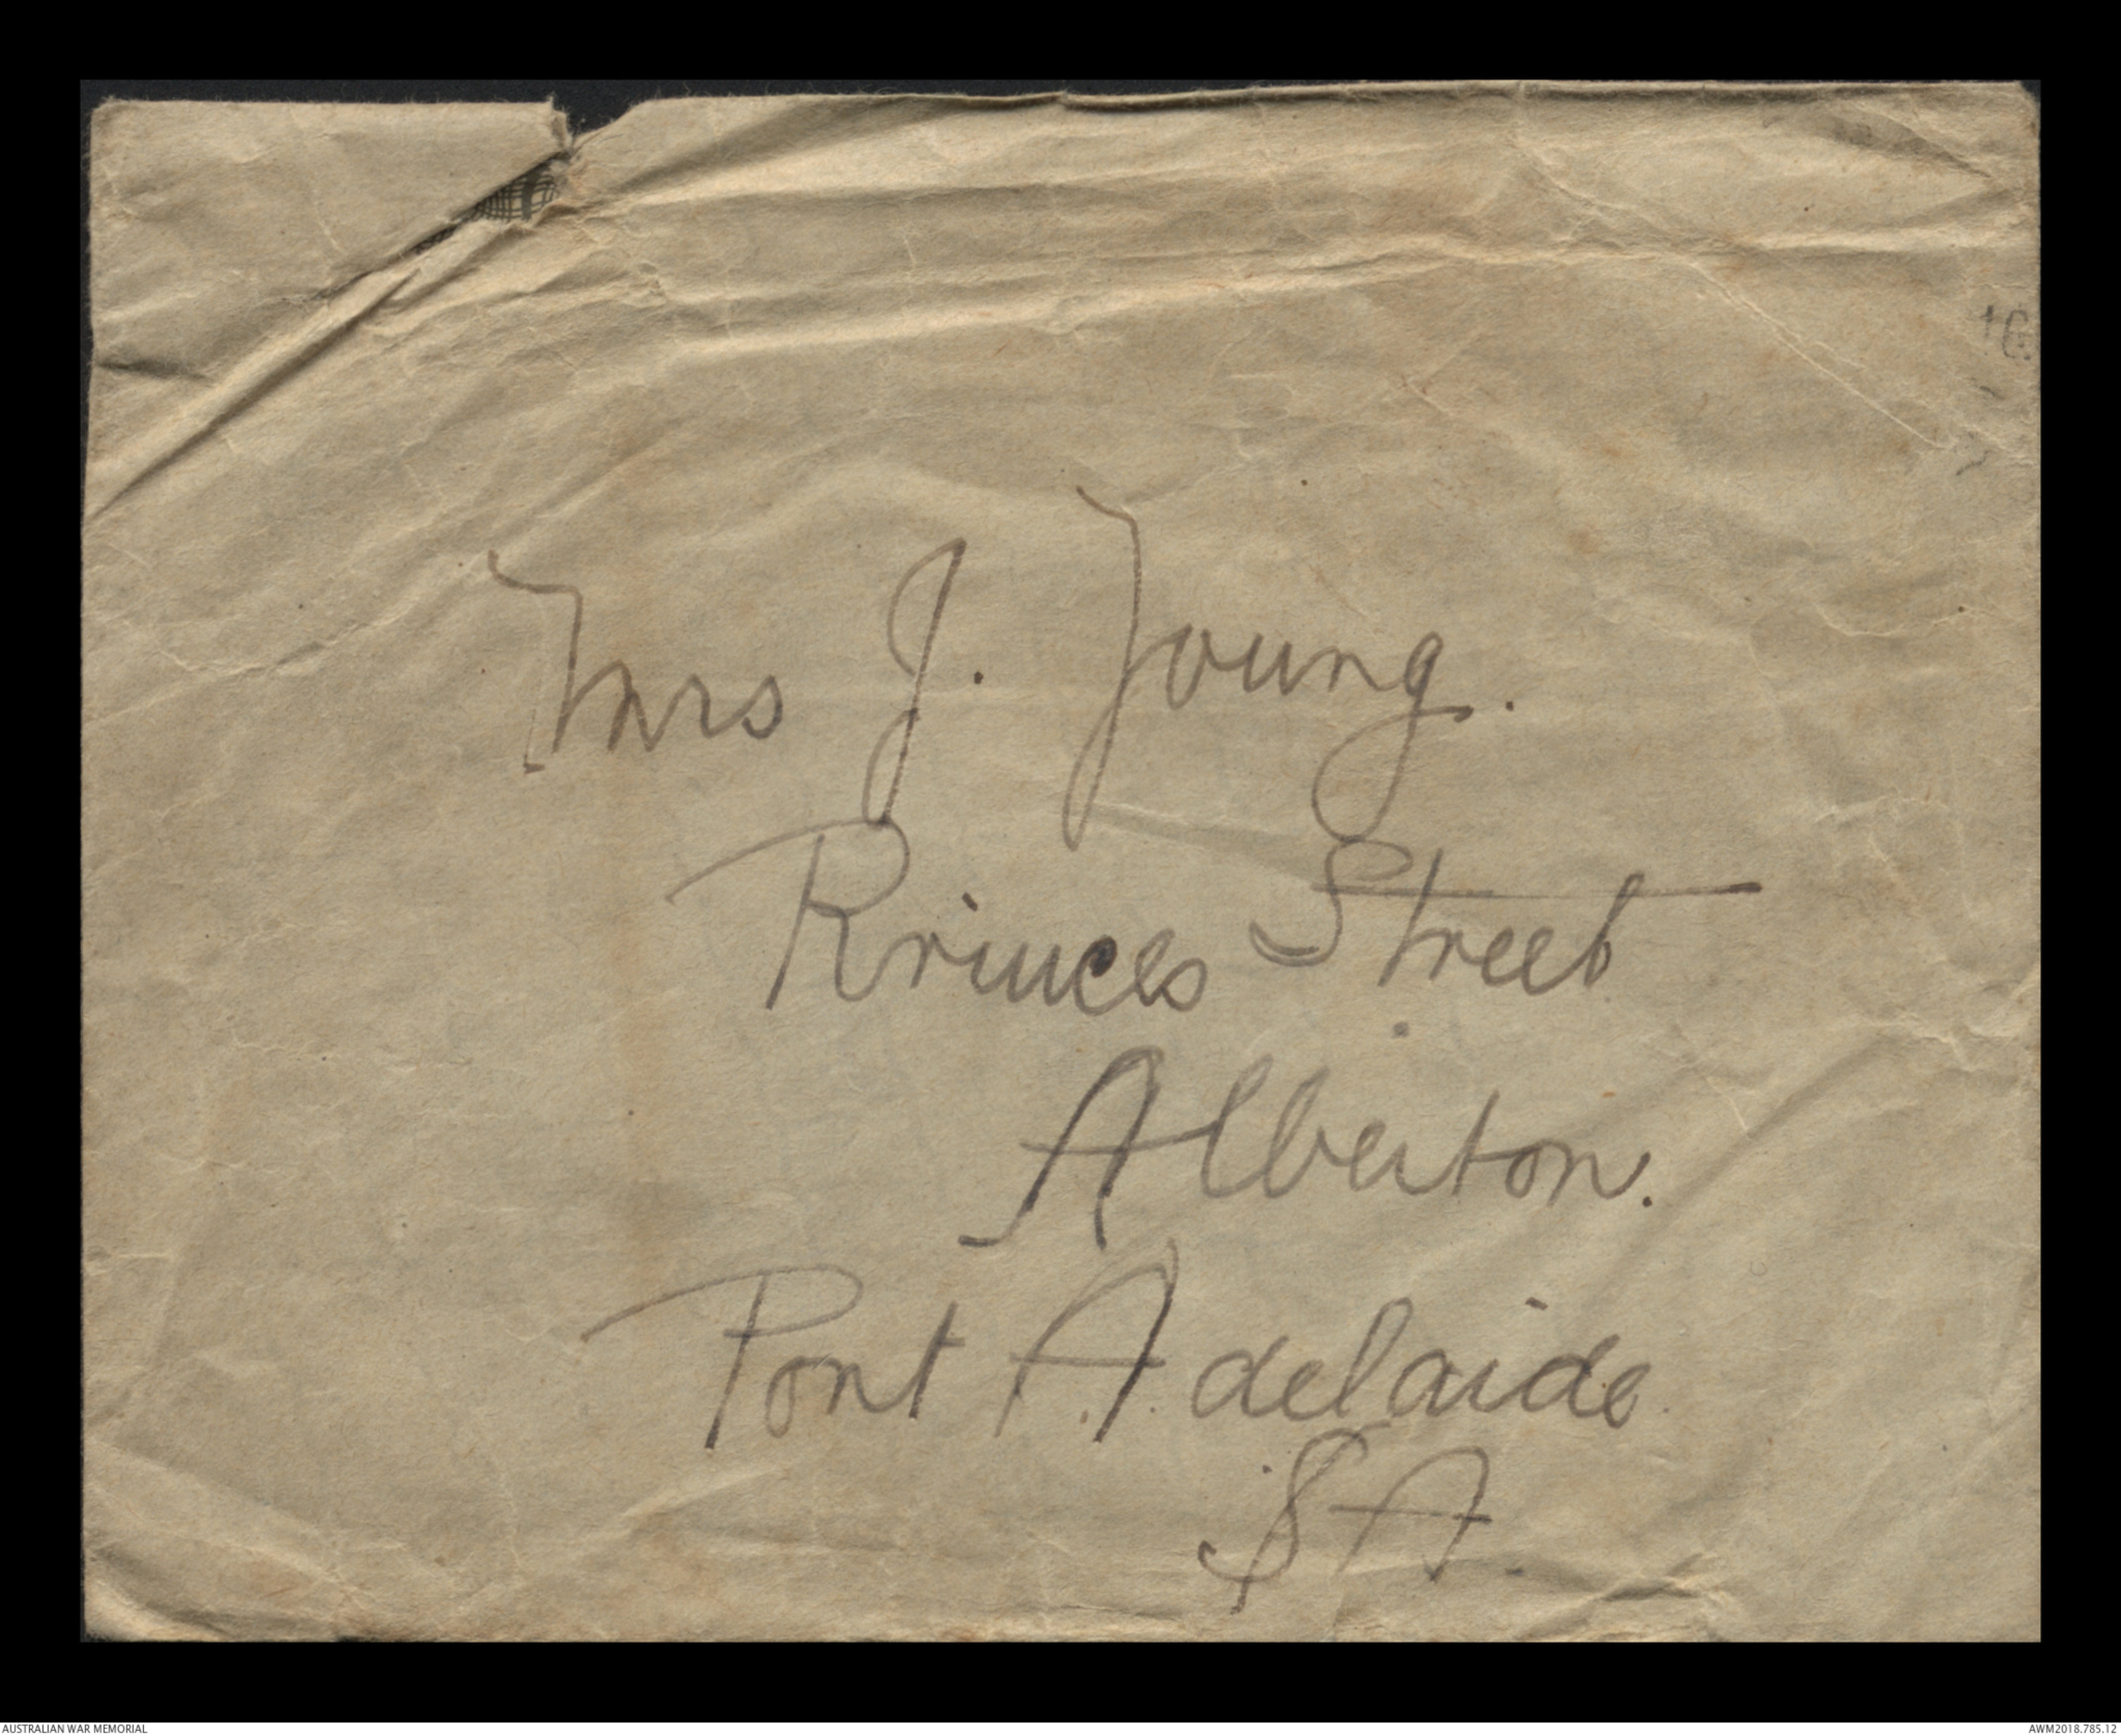 Mrs J. Young.
Princes Street
Alberton.
Port Adelaide
SA.
AUSTRALIAN WAR MEMORIAL
AWM2018.785.12